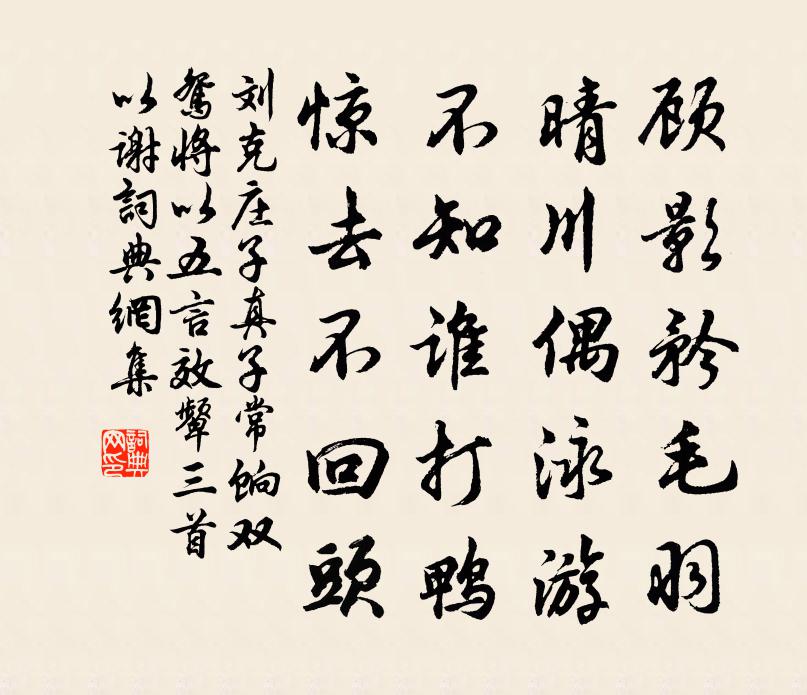 顾影矜毛羽
晴川偶泳游
不知谁打鸭
惊去不回頭
刘克庄子真子常饷双
鸳将以五言效颦三首
以谢詞典網集
詞典
网印